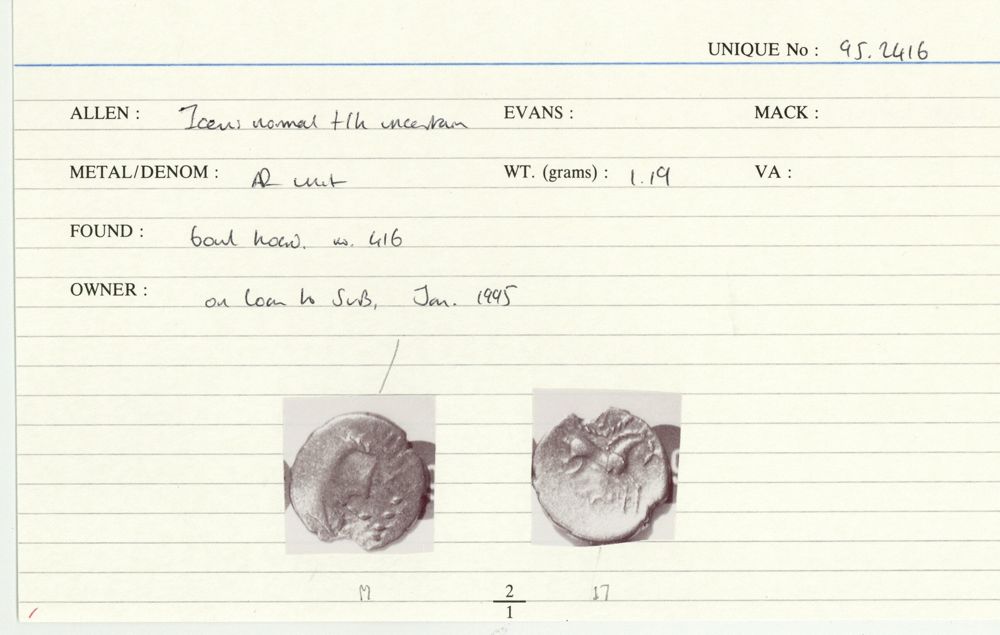 UNIQUE No : 95.2416
ALLEN : Iceni normal f/h uncertain EVANS : MACK :
METAL/DENOM : AR unit WT. (grams) : 1.19 VA :
FOUND : bowl hoard. no. 416
OWNER : on loan to SVB, Jan. 1995
M 2 17
1